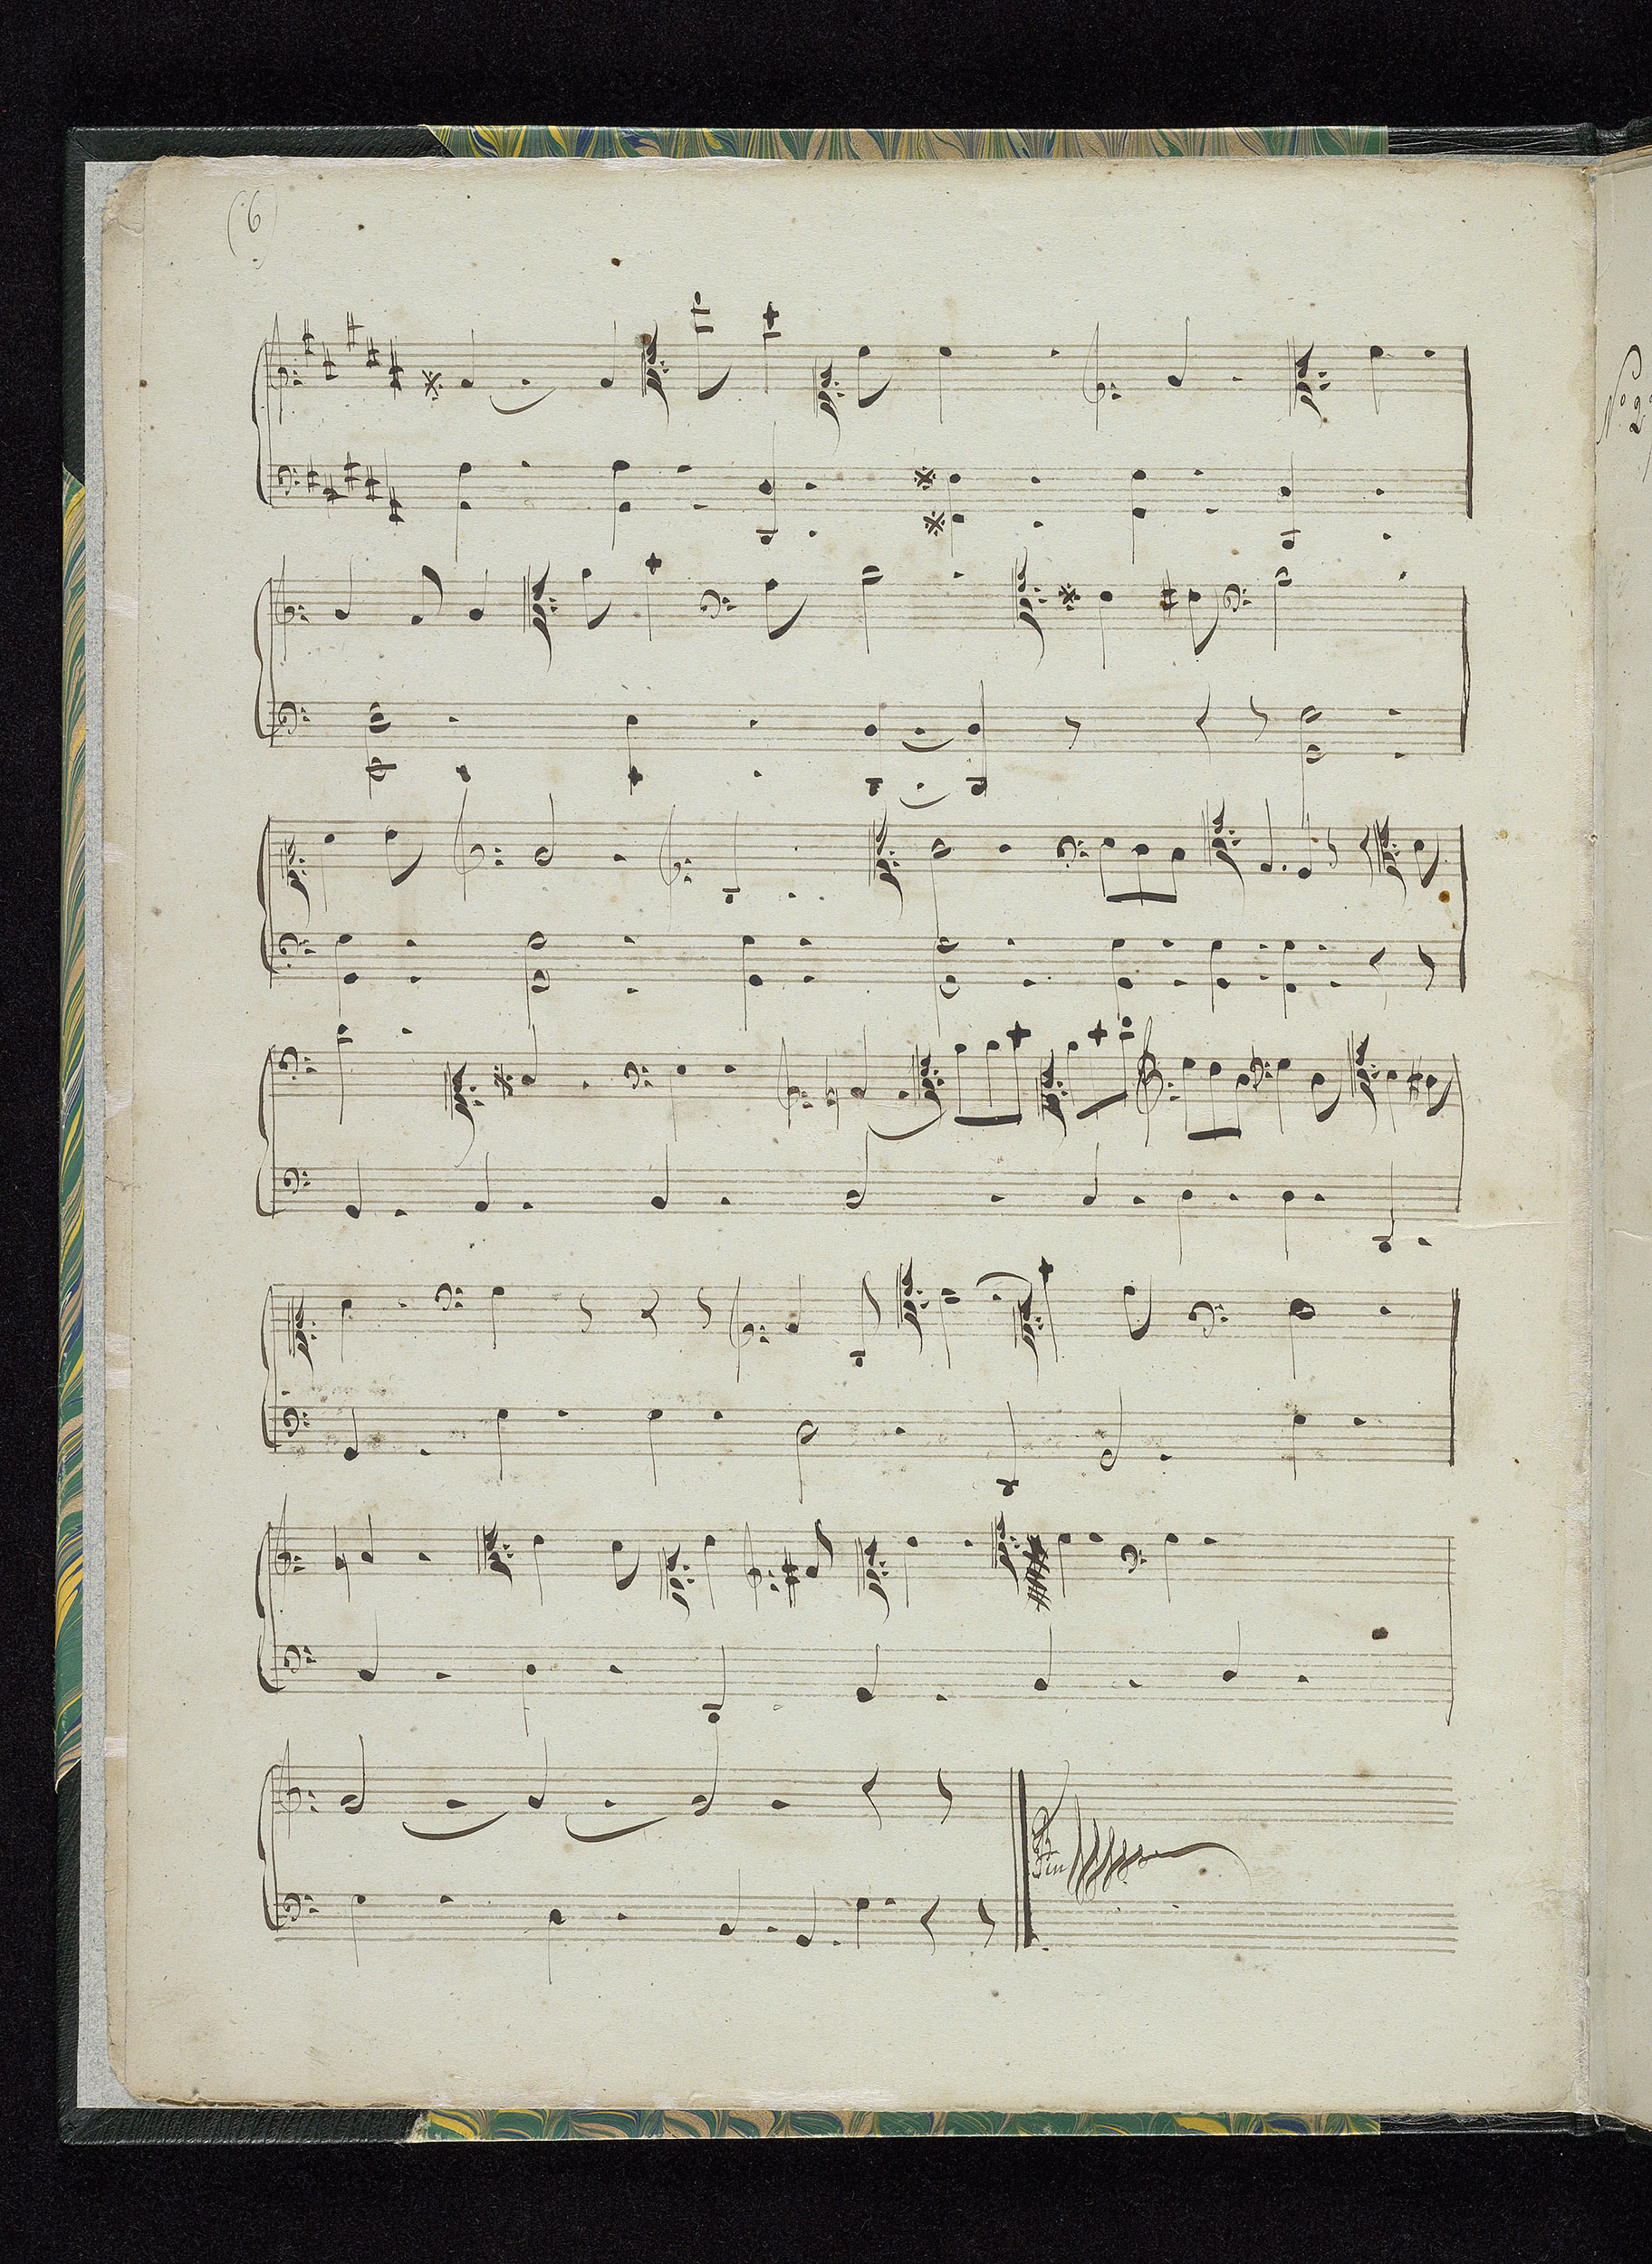 (6)
No 2
Fin